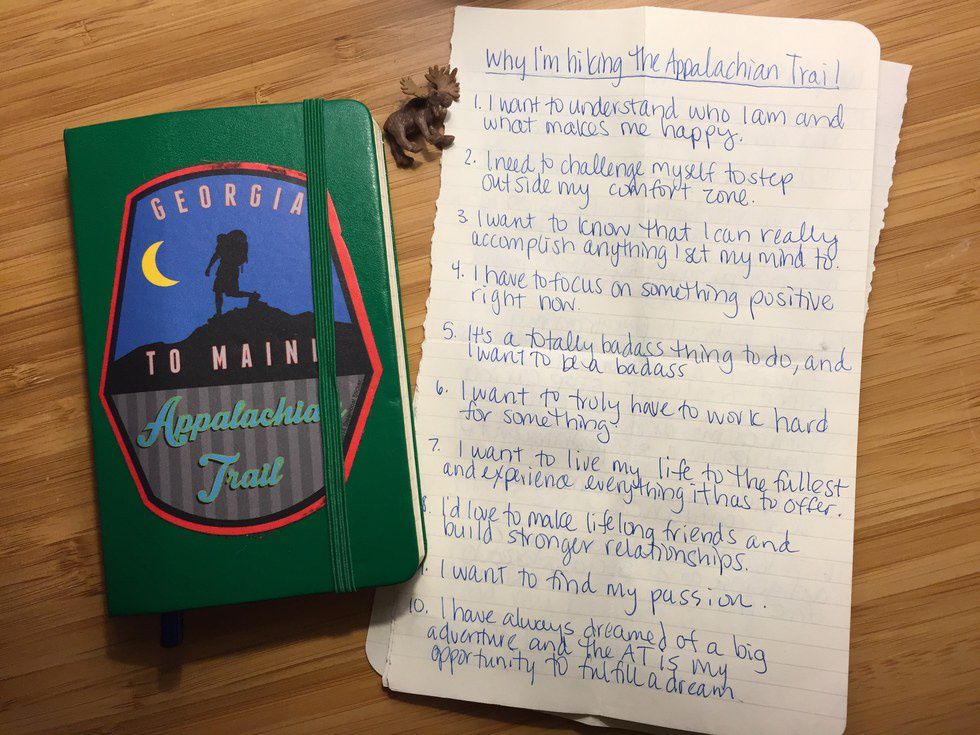 GEORGIA
TO MAIN
Appalachia
Trail
Why I'm hiking the Appalachian Trail
1. I want to understand who I am and
what makes me happy.
2. I need to challenge myself to step
outside my comfort zone.
3. I want to know that I can really
accomplish anything I set my mind to.
4. I have to focus on something positive
right now.
5. It's a totally badass thing to do, and
I want to be a badass
6. I want to truly have to work hard
for something
7. I want to live my life to the fullest
and experience everything it has to offer.
8. I'd love to make lifelong friends and
build stronger relationships.
9. I want to find my passion.
10. I have always dreamed of a big
adventure and the AT is my
opportunity to fulfill a dream